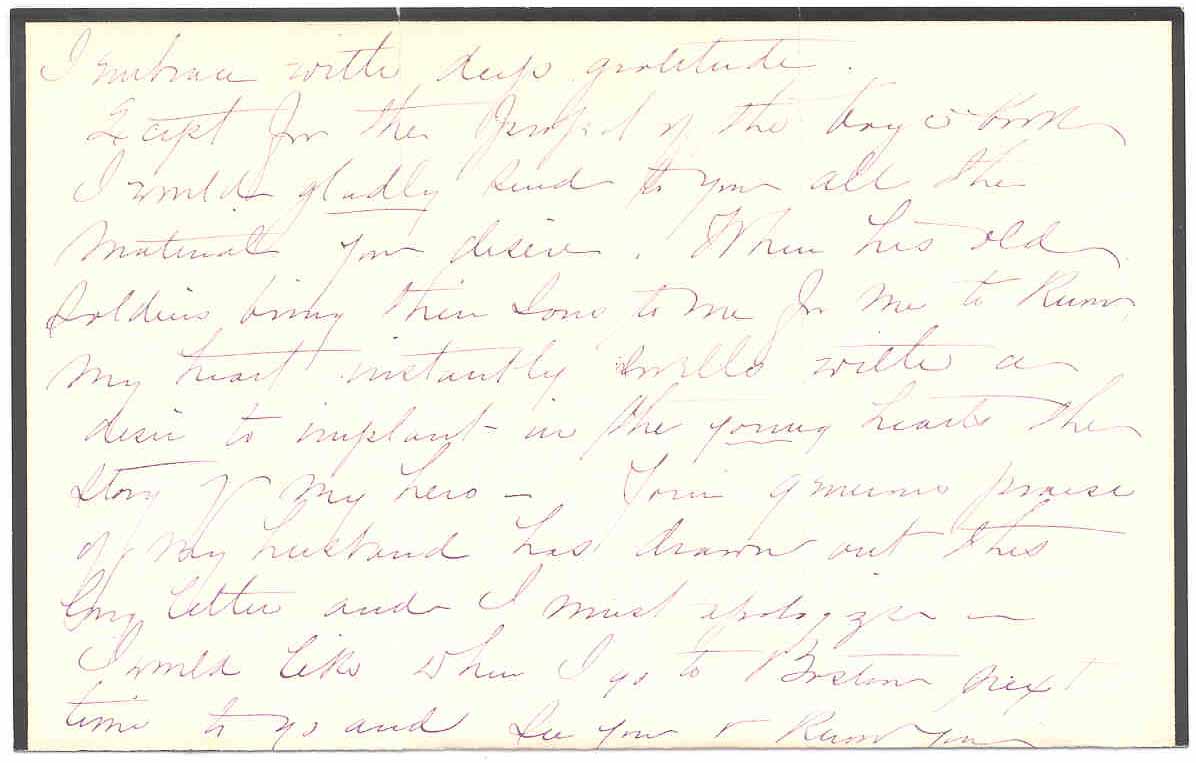 I embrace with deep gratitude.
Except for the project of the boy's book
I would gladly send to you all the
material you desire. When his old
soldiers bring their sons to me for me to know,
my heart instantly swells with a
desire to implant in the young hearts the
story of my hero – Your generous praise
of my husband has drawn out this
long letter and I must apologize –
I would like when I go to Boston next
time to go and see you & know you